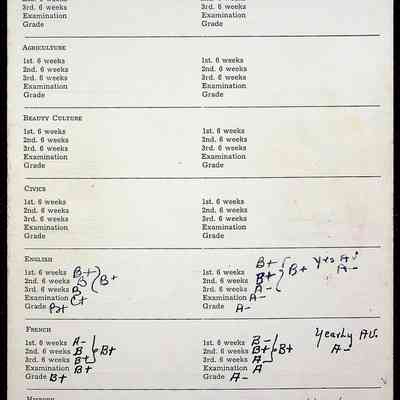 3rd. 6 weeks 3rd. 6 weeks
Examination Examination
Grade Grade
AGRICULTURE
1st. 6 weeks 1st. 6 weeks
2nd. 6 weeks 2nd. 6 weeks
3rd. 6 weeks 3rd. 6 weeks
Examination Examination
Grade Grade
BEAUTY CULTURE
1st. 6 weeks 1st. 6 weeks
2nd. 6 weeks 2nd. 6 weeks
3rd. 6 weeks 3rd. 6 weeks
Examination Examination
Grade Grade
CIVICS
1st. 6 weeks 1st. 6 weeks
2nd. 6 weeks 2nd. 6 weeks
3rd. 6 weeks 3rd. 6 weeks
Examination Examination
Grade Grade
ENGLISH
1st. 6 weeks B+ 1st. 6 weeks B+
2nd. 6 weeks B B+ 2nd. 6 weeks B+ B+ A-
3rd. 6 weeks B 3rd. 6 weeks A-
Examination C+ Examination A-
Grade B+ Grade A-
FRENCH
1st. 6 weeks A- 1st. 6 weeks B- Yearly AV.
2nd. 6 weeks B B+ 2nd. 6 weeks B+ B+ A-
3rd. 6 weeks B+ 3rd. 6 weeks A-
Examination B+ Examination A
Grade B+ Grade A-
HISTORY